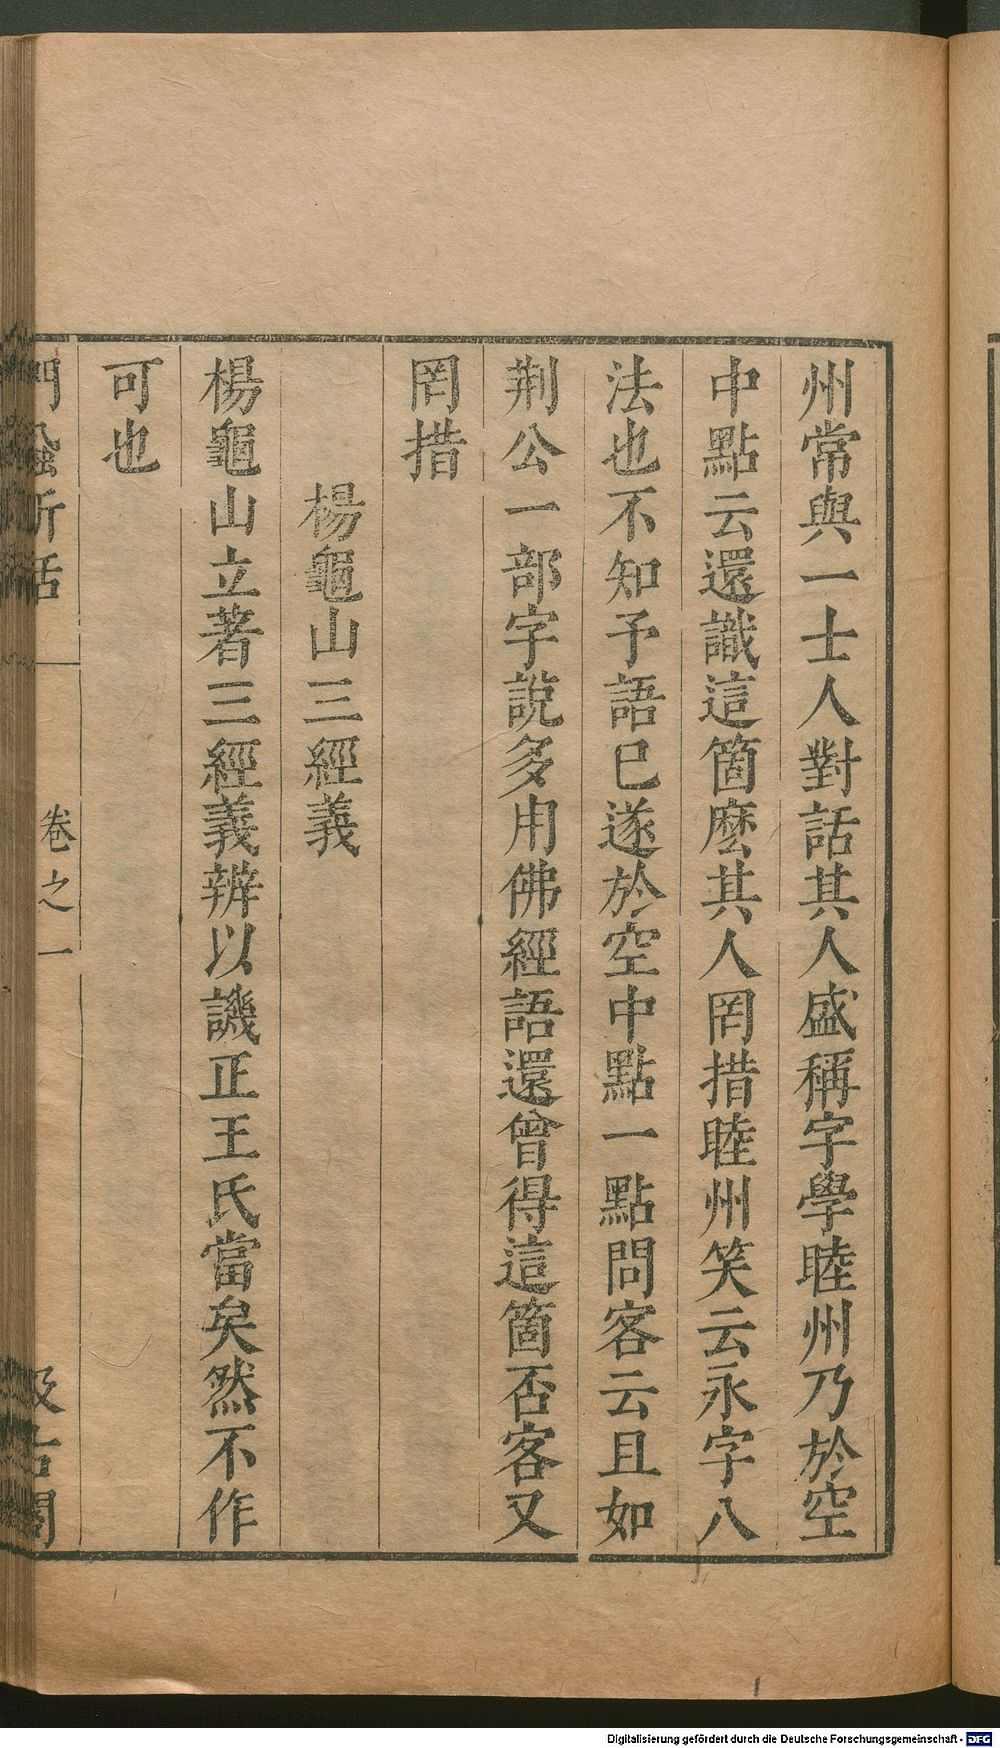 州常與一士人對話其人盛稱字學睦州乃於空
中點云還識這箇麽其人罔措睦州笑云永字八
法也不知予語已遂於空中點一點問客云且如
荆公一部字說多用佛經語還曾得這箇否客又
罔措
楊龜山三經義
楊龜山立著三經義辨以譏正王氏當矣然不作
可也
卷之一
Digitalisierung gefördert durch die Deutsche Forschungsgemeinschaft - DFG